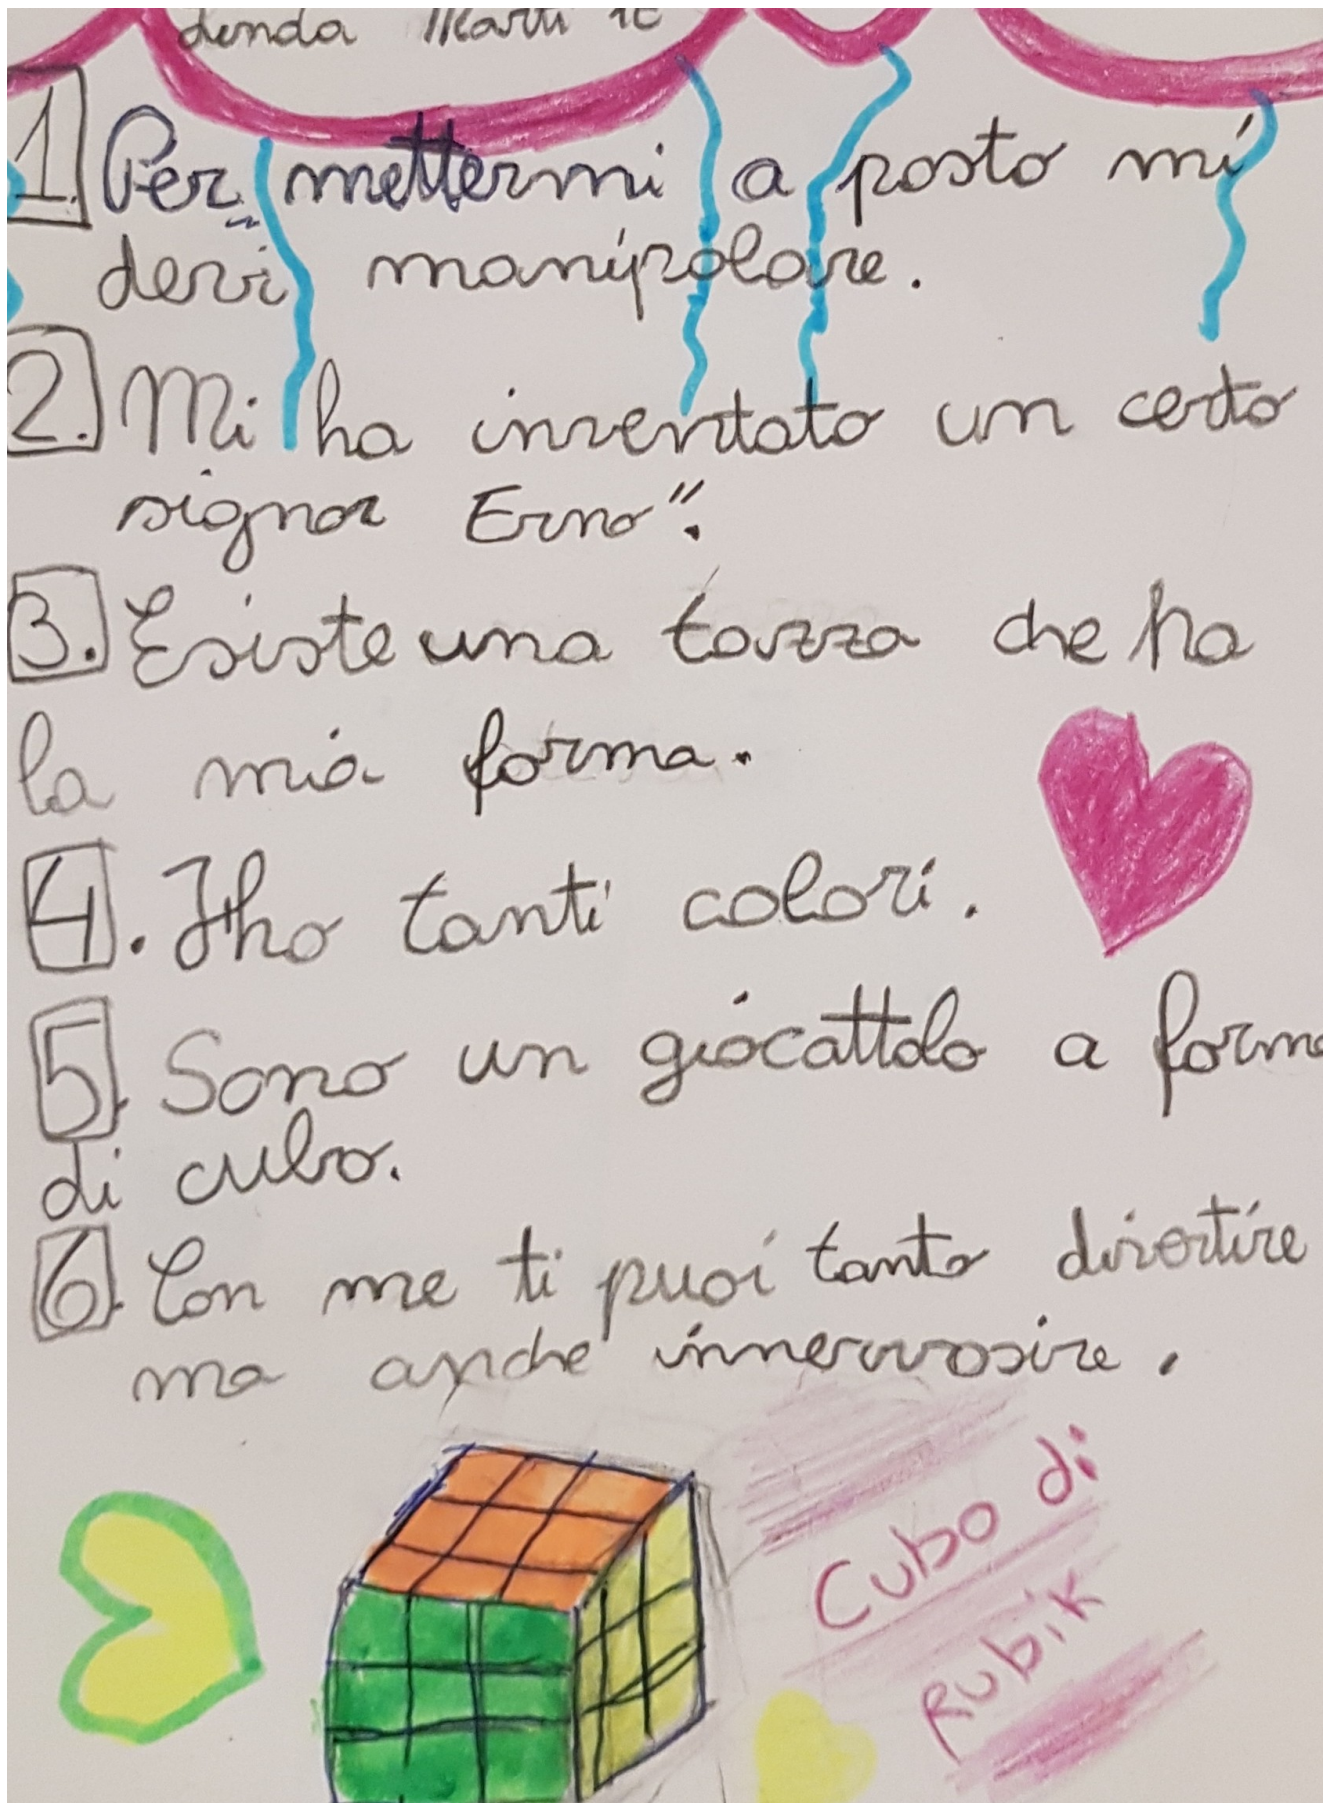 1. Per mettermi a posto mi
devi manipolare.
2. Mi ha inventato un certo
signor Erno".
3. Esiste una tazza che ha
la mia forma.
4. Ho tanti colori.
5. Sono un giocattolo a forma
di cubo.
6. Con me ti puoi tanto divertire
ma anche innervosire.
Cubo di
Rubik